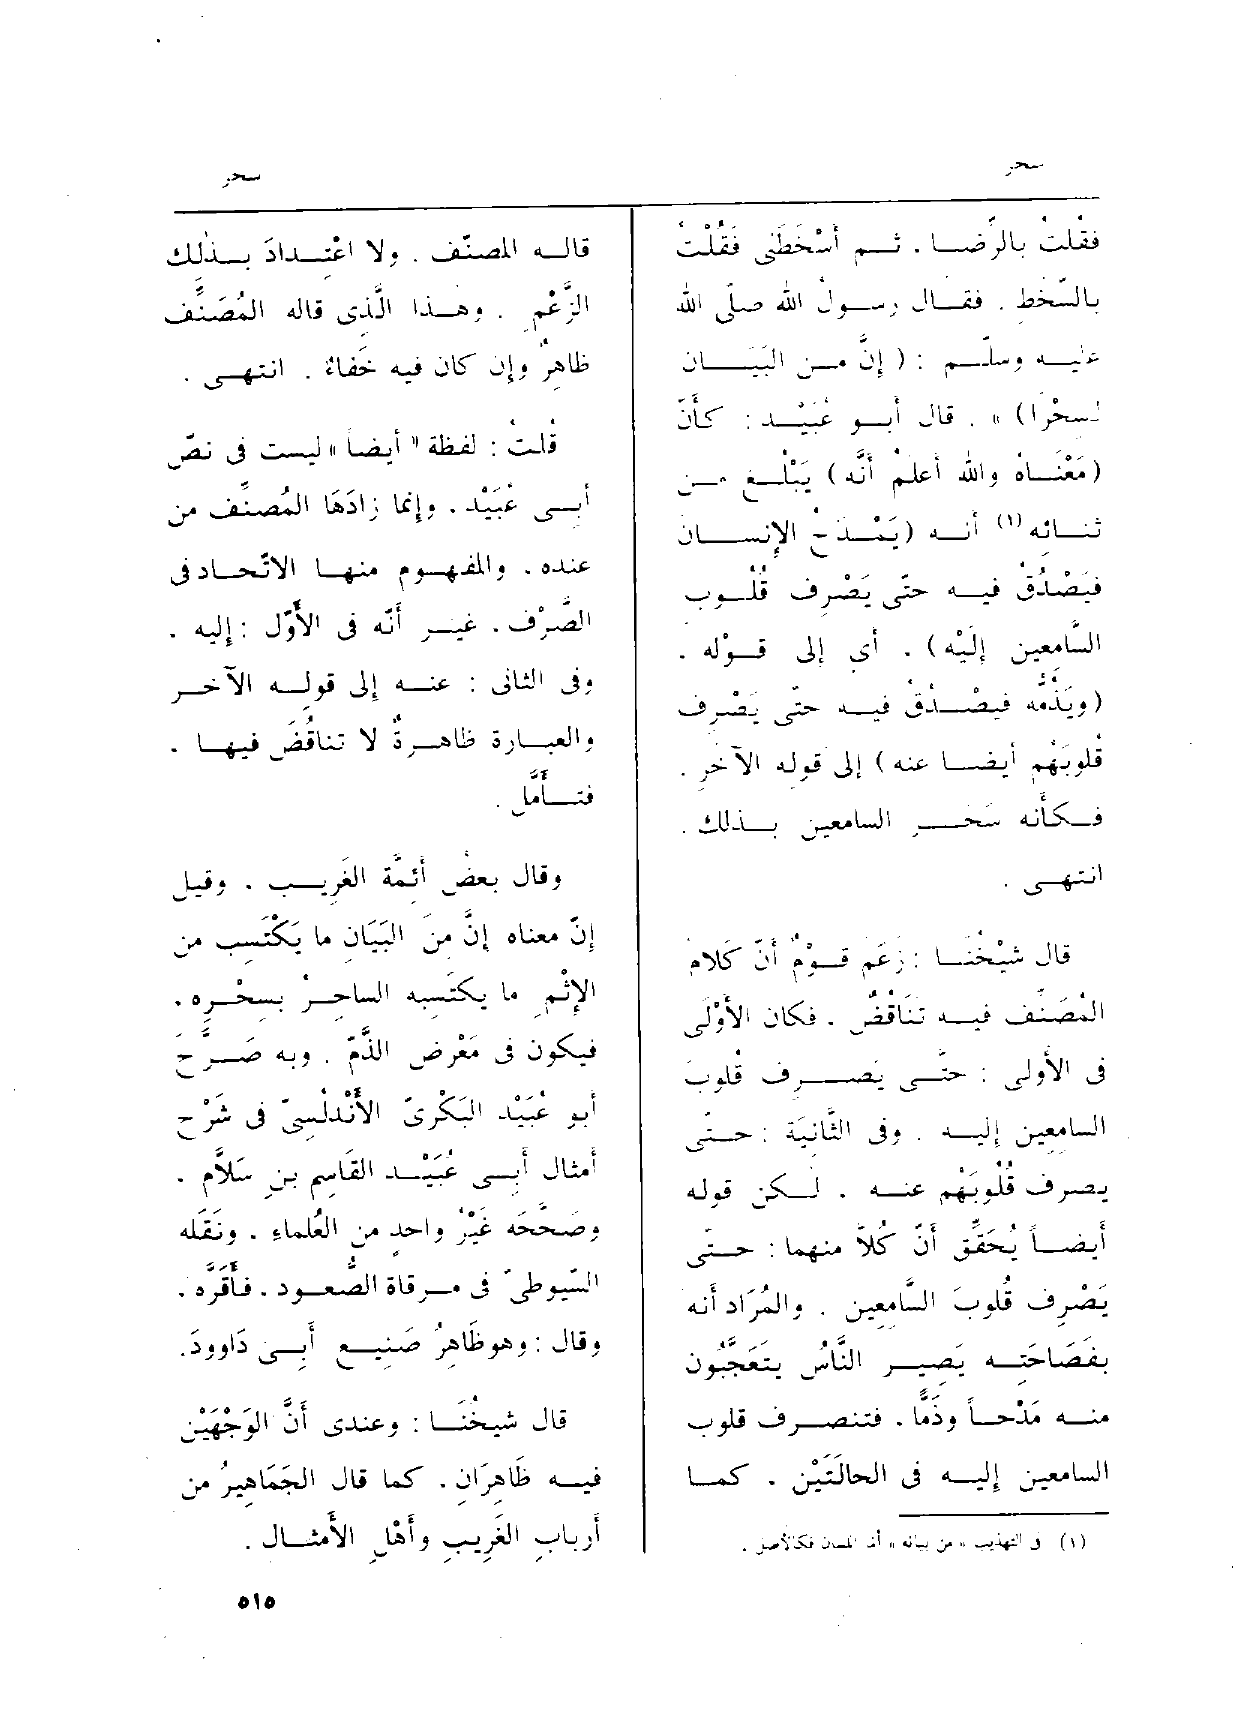 سحر
سحر
فقلتُ بالرِّضَا . ثم أَسْخَطَنِى فَقُلْتُ
بالسُّخط . فقال رسولُ الله صلّى الله
عليه وسلم : ( إِنَّ من البَيَان
لَسِحْرًا) » . قال أَبو عُبَيْد : كأَنَّ
(مَعْنَاه والله أَعلمُ أَنَّه) يَبْلُغ من
ثنائه (١) أَنه (يَمْدَح الإِنسان
فيَصْدُق فيه حتّى يَصْرِف قُلُوب
السَّامعين إِلَيْه) . أَى إلى قَوْله .
(ويَذُمّه فيَصْدُق فيه حتّى يَصْرِف
قُلوبَهُم أَيضا عنه) إلى قوله الآخَرِ .
فكأَنّه سَحَر السامعين بذلك .
انتهى .
قال شيْخُنَا : زَعَم قَوْمٌ أَنّ كَلامَ
المُصَنِّف فيه تَنَاقُضٌ . فكان الأَوْلَى
فى الأُولى : حتَّى يَصرِف قُلُوبَ
السامعين إليه . وفى الثَّانيَة : حتَّى
يصرف قُلُوبَهُم عنه . لكن قوله
أَيضاً يُحَقِّق أَنّ كُلاًّ منهما : حتى
يَصْرِف قُلوبَ السَّامعين . والمُرَاد أَنه
بفَصَاحَتِه يَصِير النَّاسُ يتعَجَّبُون
منه مَدْحاً وذَمًّا . فتنصرف قلوب
السامعين إليه فى الحالَتَيْن . كما
(١) فى التهذيب « من بيانه » أما اللسان فكالأصل .
قاله المصنّف . ولا اعْتِدادَ بذلك
الزَّعْمِ . وهذا الَّذى قاله المُصَنِّف
ظاهرٌ وإن كان فيه خَفَاءٌ . انتهى .
قُلتُ : لفظة « أَيضاً » ليست فى نصّ
أَبى عُبَيْد . وإِنما زادَهَا المُصنِّف من
عنده . والمفهوم منها الاتّحاد فى
الصَّرْف . غير أَنّه فى الأَوّل : إليه .
وفى الثانى : عنه إلى قوله الآخر
والعبارة ظاهرةٌ لا تناقُضَ فيها .
فتأَمَّل .
وقال بعضُ أَئمَّة الغَرِيب . وقيل
إِنّ معناه إِنَّ مِنَ البَيَانِ ما يَكْتَسِب من
الإِثْمِ ما يكتَسِبه الساحِرُ بسِحْرِه .
فيكون فى مَعْرِض الذَّمّ . وبه صَرَّح
أَبو عُبَيْد البَكْرِىّ الأَنْدَلُسِىّ فى شَرْح
أَمثال أَبى عُبَيْد القَاسِمِ بنِ سَلاَّم .
وصَحَّحَه غيْرُ واحدٍ من العُلماءِ . ونَقَله
السّيوطىّ فى مرقاة الصُّعود . فأَقرّه .
وقال : وهو ظَاهِرُ صَنِيعِ أَبى دَاوودَ.
قال شيخُنَا : وعندى أَنَّ الوَجْهَيْن
فيه ظَاهِرَانِ . كما قال الجَمَاهِيرُ من
أَربابِ الغَرِيبِ وأَهْلِ الأَمثال .
٥١٥